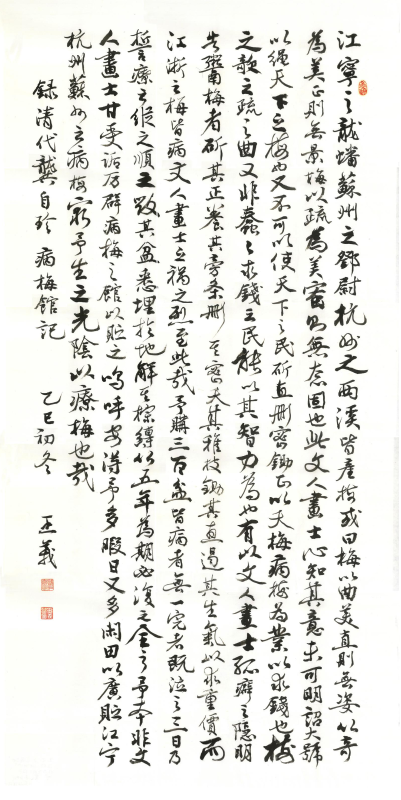 江寧之龍蟠蘇州之鄧尉杭州之西溪皆產梅或曰梅以曲美直則無姿以奇
為美正則無景梅以疏為美密則無態固也此文人畫士心知其意未可明詔大號
以繩天下之梅也又不可以使天下之民斫直刪密鋤正以夭梅病梅為業以求錢也梅
之欹之疏之曲又非蠢蠢求錢之民能以其智力為也有以文人畫士孤癖之隱明
告鬻梅者斫其正養其旁條刪其密夭其稚枝鋤其直遏其生氣以求重價而
江浙之梅皆病文人畫士之禍之烈至此哉予購三百盆皆病者無一完者既泣之三日乃
誓療之縱之順之毀其盆悉埋於地解其棕縛以五年為期必復之全之予本非文
人畫士甘受詬厲辟病梅之館以貯之嗚呼安得予多暇日又多閑田以廣貯江宁
杭州蘇州之病梅窮予生之光陰以療梅也哉
錄清代龔自珍 病梅館記 乙巳初冬